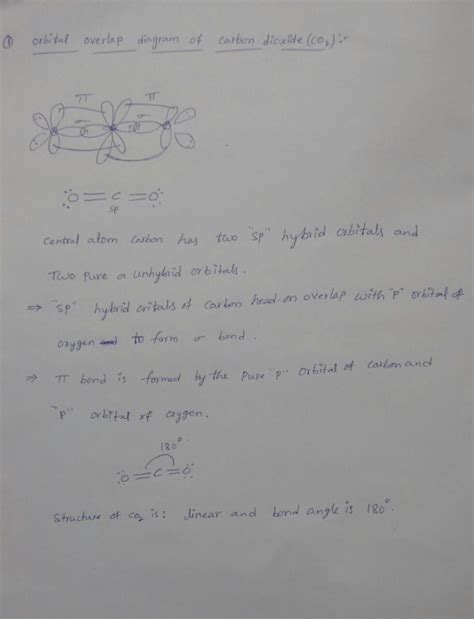 ① orbital overlap diagram of carbon dioxide (CO₂):-
π π
σ σ
:Ö=C=Ö:
sp
Central atom carbon has two "sp" hybrid orbitals and
Two pure or unhybrid orbitals.
⇒ "sp" hybrid oritals of carbon head-on overlap with "p" orbital of
oxygen to form σ bond.
⇒ π bond is formed by the pure "p" orbital of carbon and
"p" orbital of oxygen.
180°
:Ö=C=Ö:
Structure of CO₂ is: linear and bond angle is 180°.